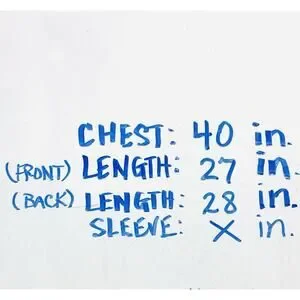 CHEST: 40 in.
(FRONT) LENGTH: 27 in.
(BACK) LENGTH: 28 in.
SLEEVE: X in.